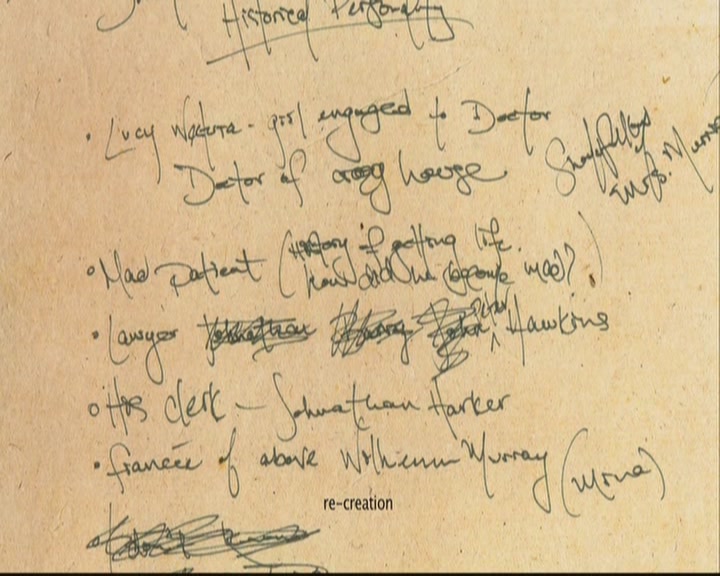 Historical Personality
• Lucy Westenra - girl engaged to Doctor
Doctor of crazy house
Schoolfellow of Miss Murray
• Mad Patient (
how did he become mad?)
• Lawyer Peter Hawkins
• His clerk - Johnathan Harker
• fiancée of above Wilhemina Murray (Mina)
re-creation